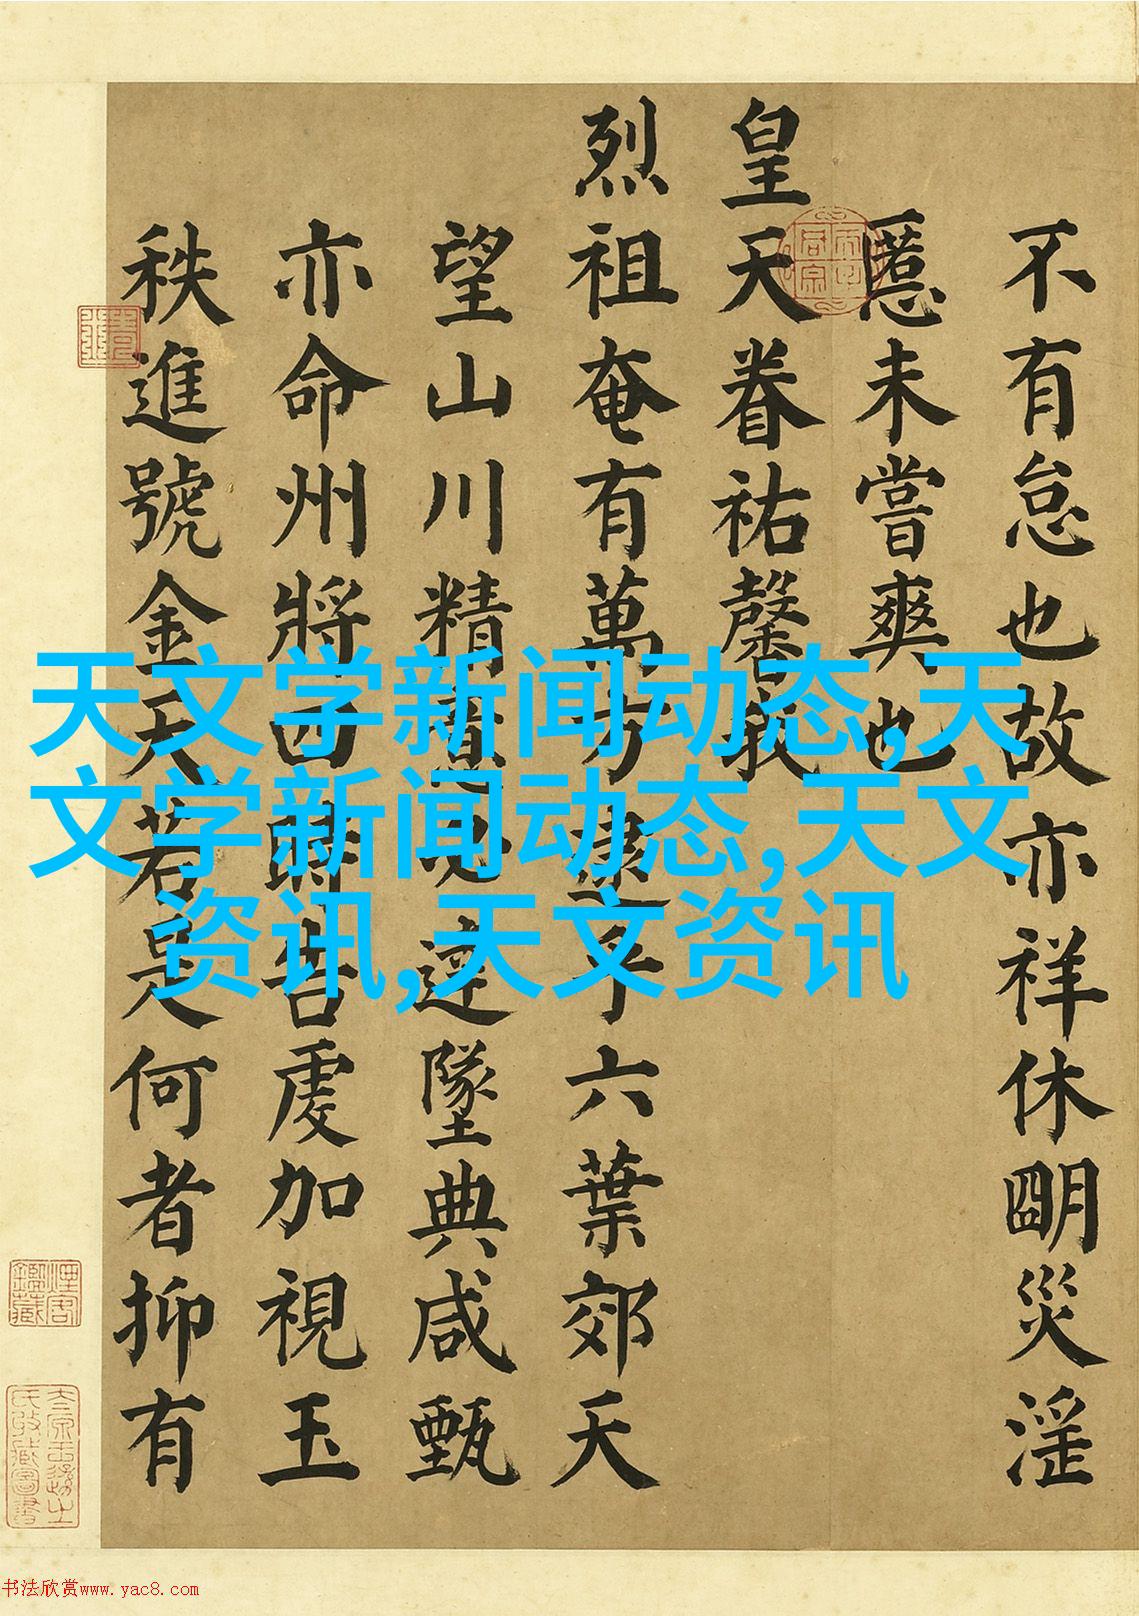 天文学新闻动态,天
文学新闻动态,天文
资讯,天文资讯
不有怠也故亦祥休朙災淫
慝未嘗爽也
皇天眷祐馨我
烈祖奄有萬方逮乎六葉郊天
望山川精意達墜典咸甄
亦命州將四時告虔加視玉
秩進號金天若是何者抑有
书法欣赏www.yac8.com